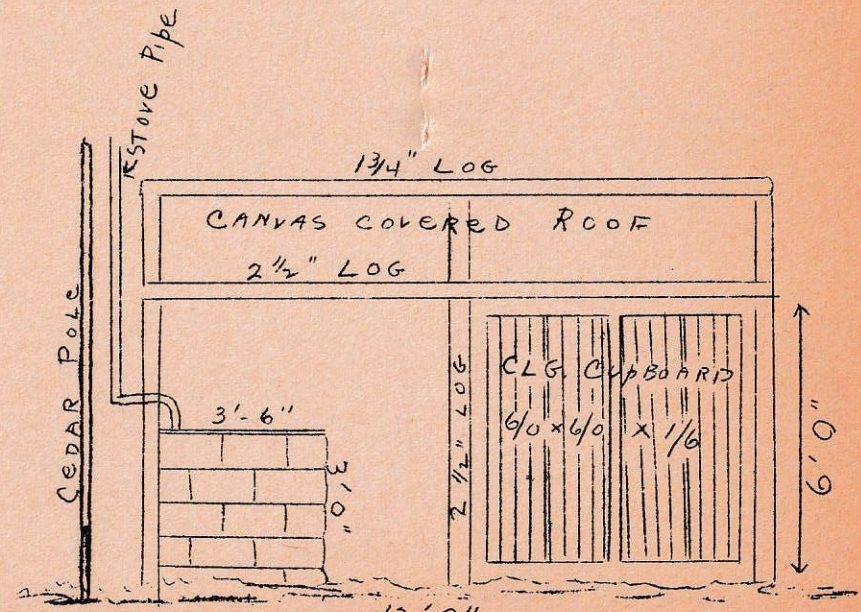 STOVE PIPE
1 3/4" LOG
CANVAS COVERED ROOF
2 1/2" LOG
CEDAR POLE
3'-6"
3'0"
2 1/2" LOG
CLG. CUPBOARD
6/0 x 6/0 x 1/6
6'0"